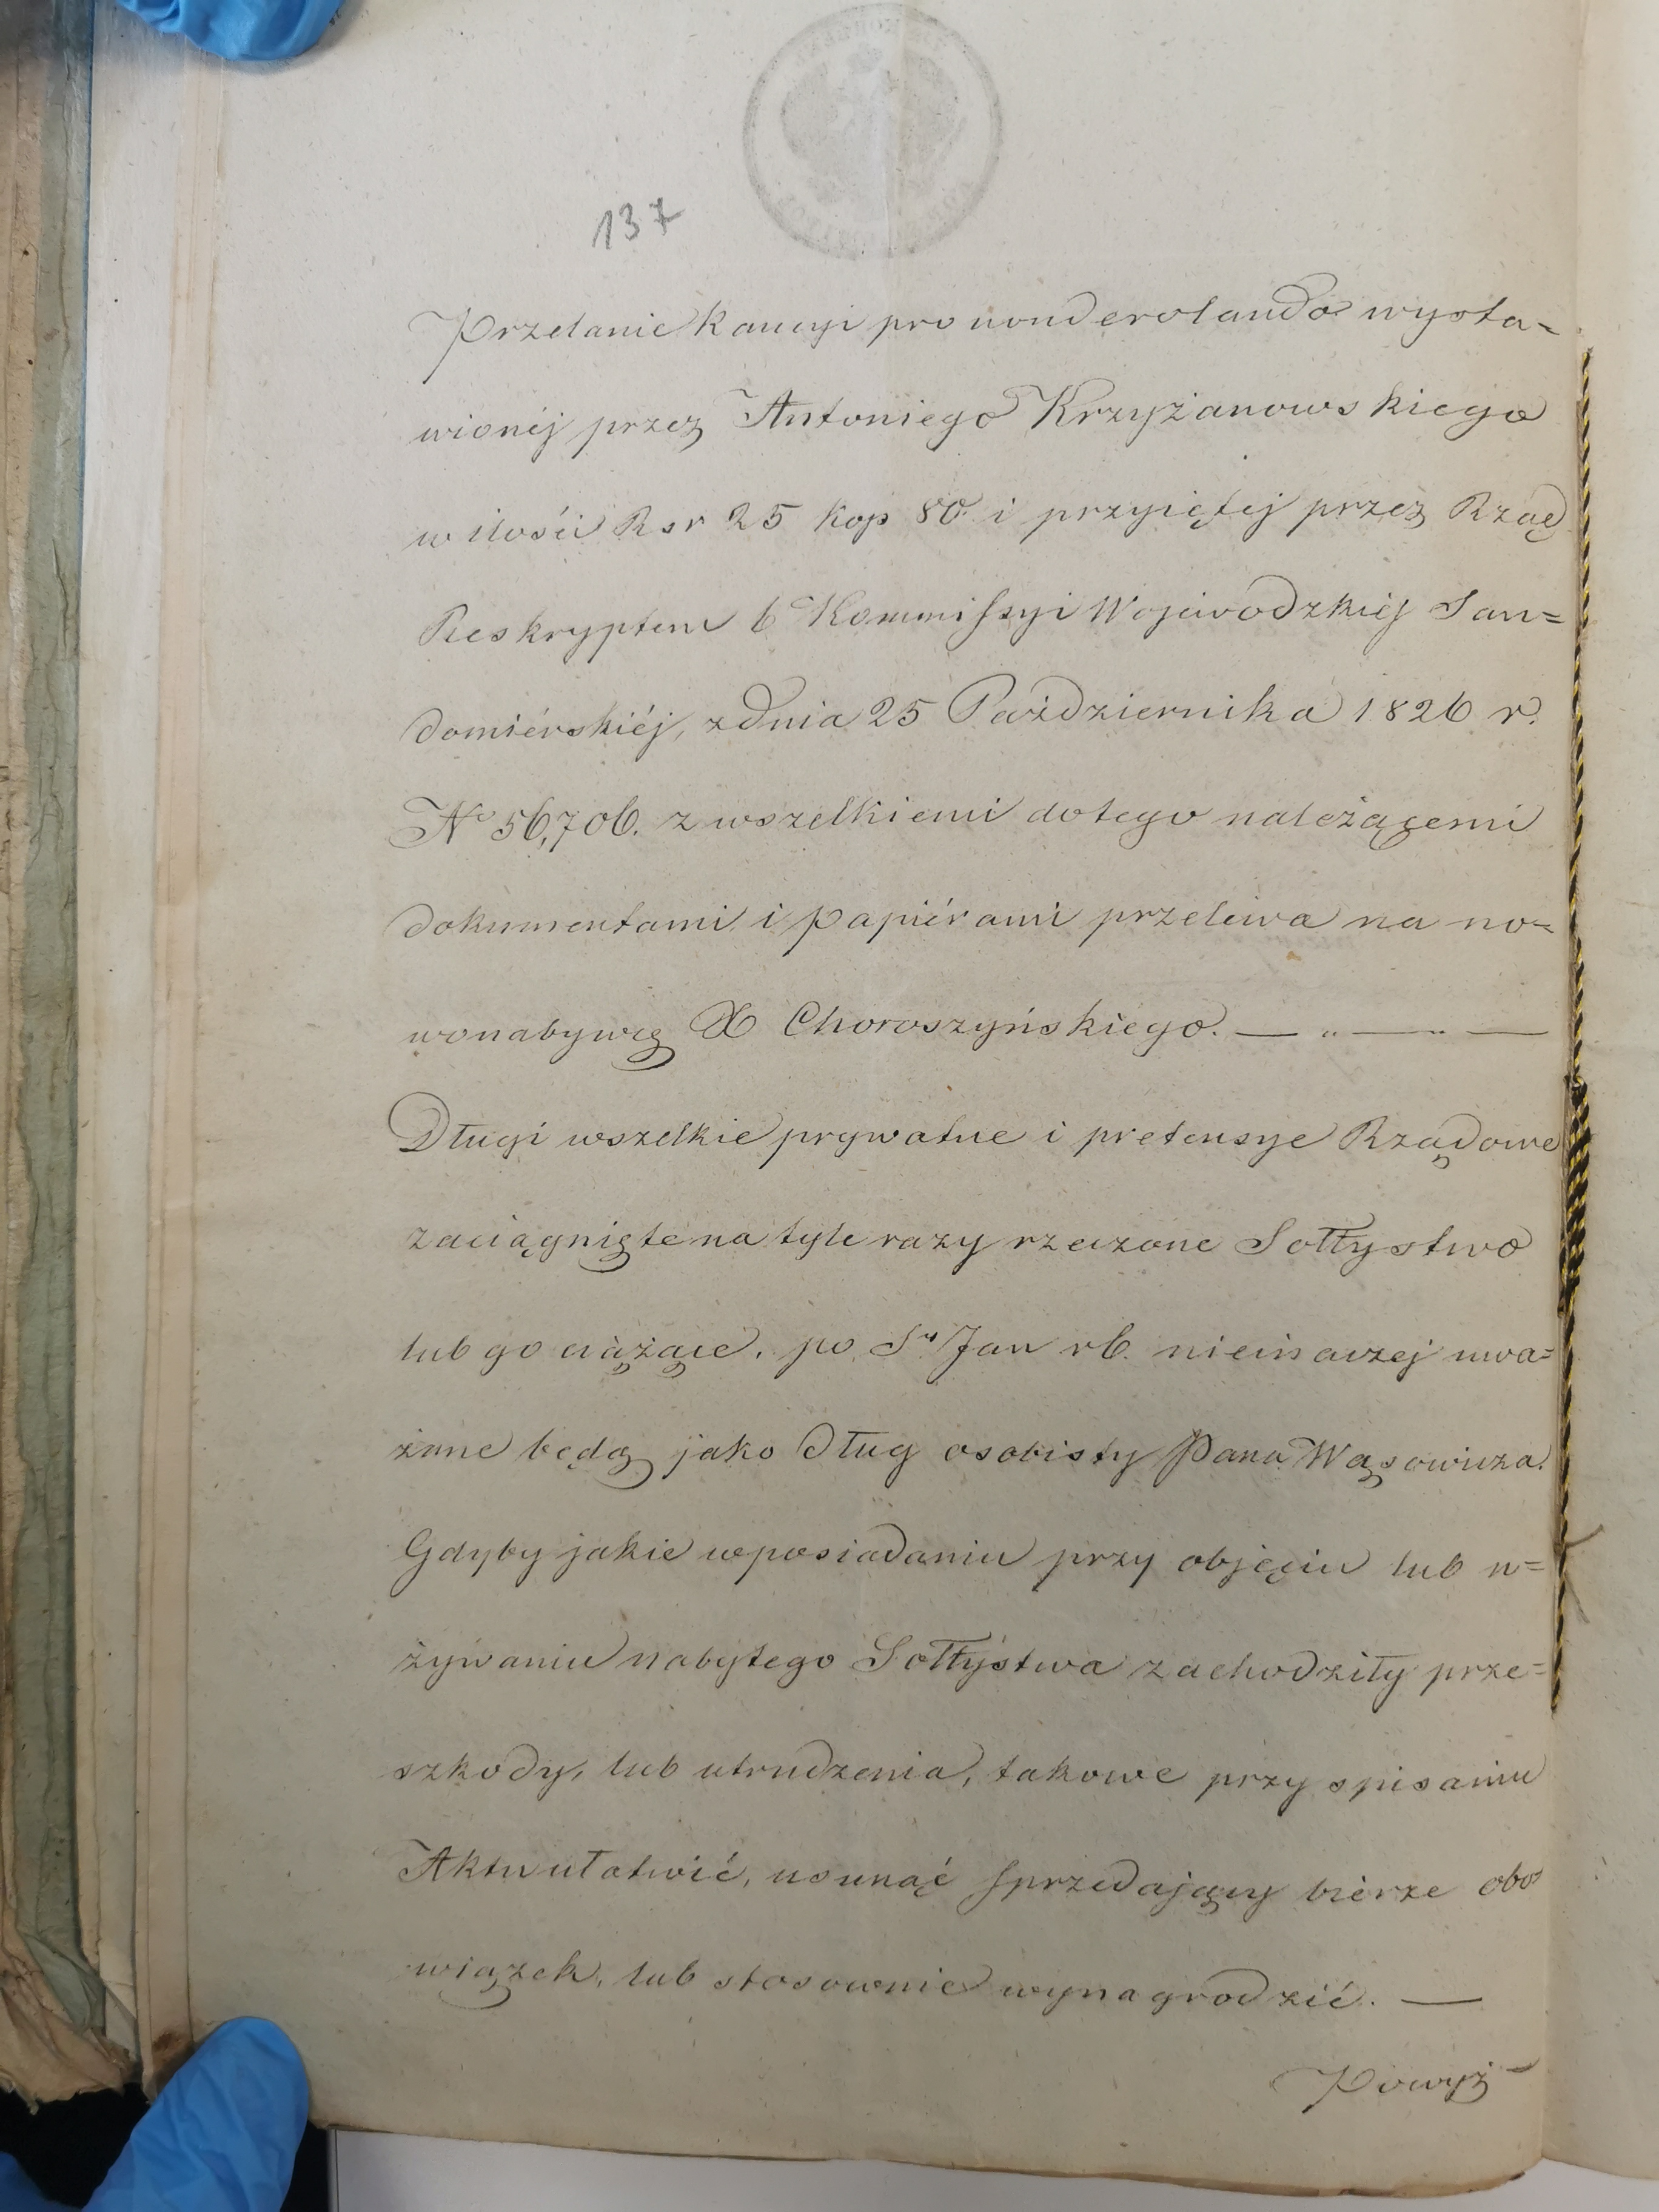 137
Przelanie kaucyi pro non derolando wysta=
wionéj przez Antoniego Krzyżanowskiego
w ilości Rsr 25 kop 80 i przyiętej przez Rząd
Reskryptem b Kommissyi Wojewodzkiéj San=
domiérskiéj, z dnia 25 Października 1826 r.
No 56,706. z wszelkiemi do tego należącemi
dokumentami i papiérami przelewa na no=
wonabywcę X Choroszyńskiego. — " — " —
Długi wszelkie prywatne i pretensye Rządowe
zaciągnięte na tyle razy rzeczone Sołtystwo
lub go ciążące, po Sw Jan rb. nieinaczej uwa=
żane będą jako dług osobisty Pana Wąsowicza.
Gdyby jakie w posiadaniu przy objęciu lub u=
żywaniu nabytego Sołtystwa zachodziły prze=
szkody, lub utrudzenia, takowe przy spisaniu
Aktu ułatwić, usunąć sprzedający bierze obo=
wiązek, lub stosownie wynagrodzić. —
Powyż